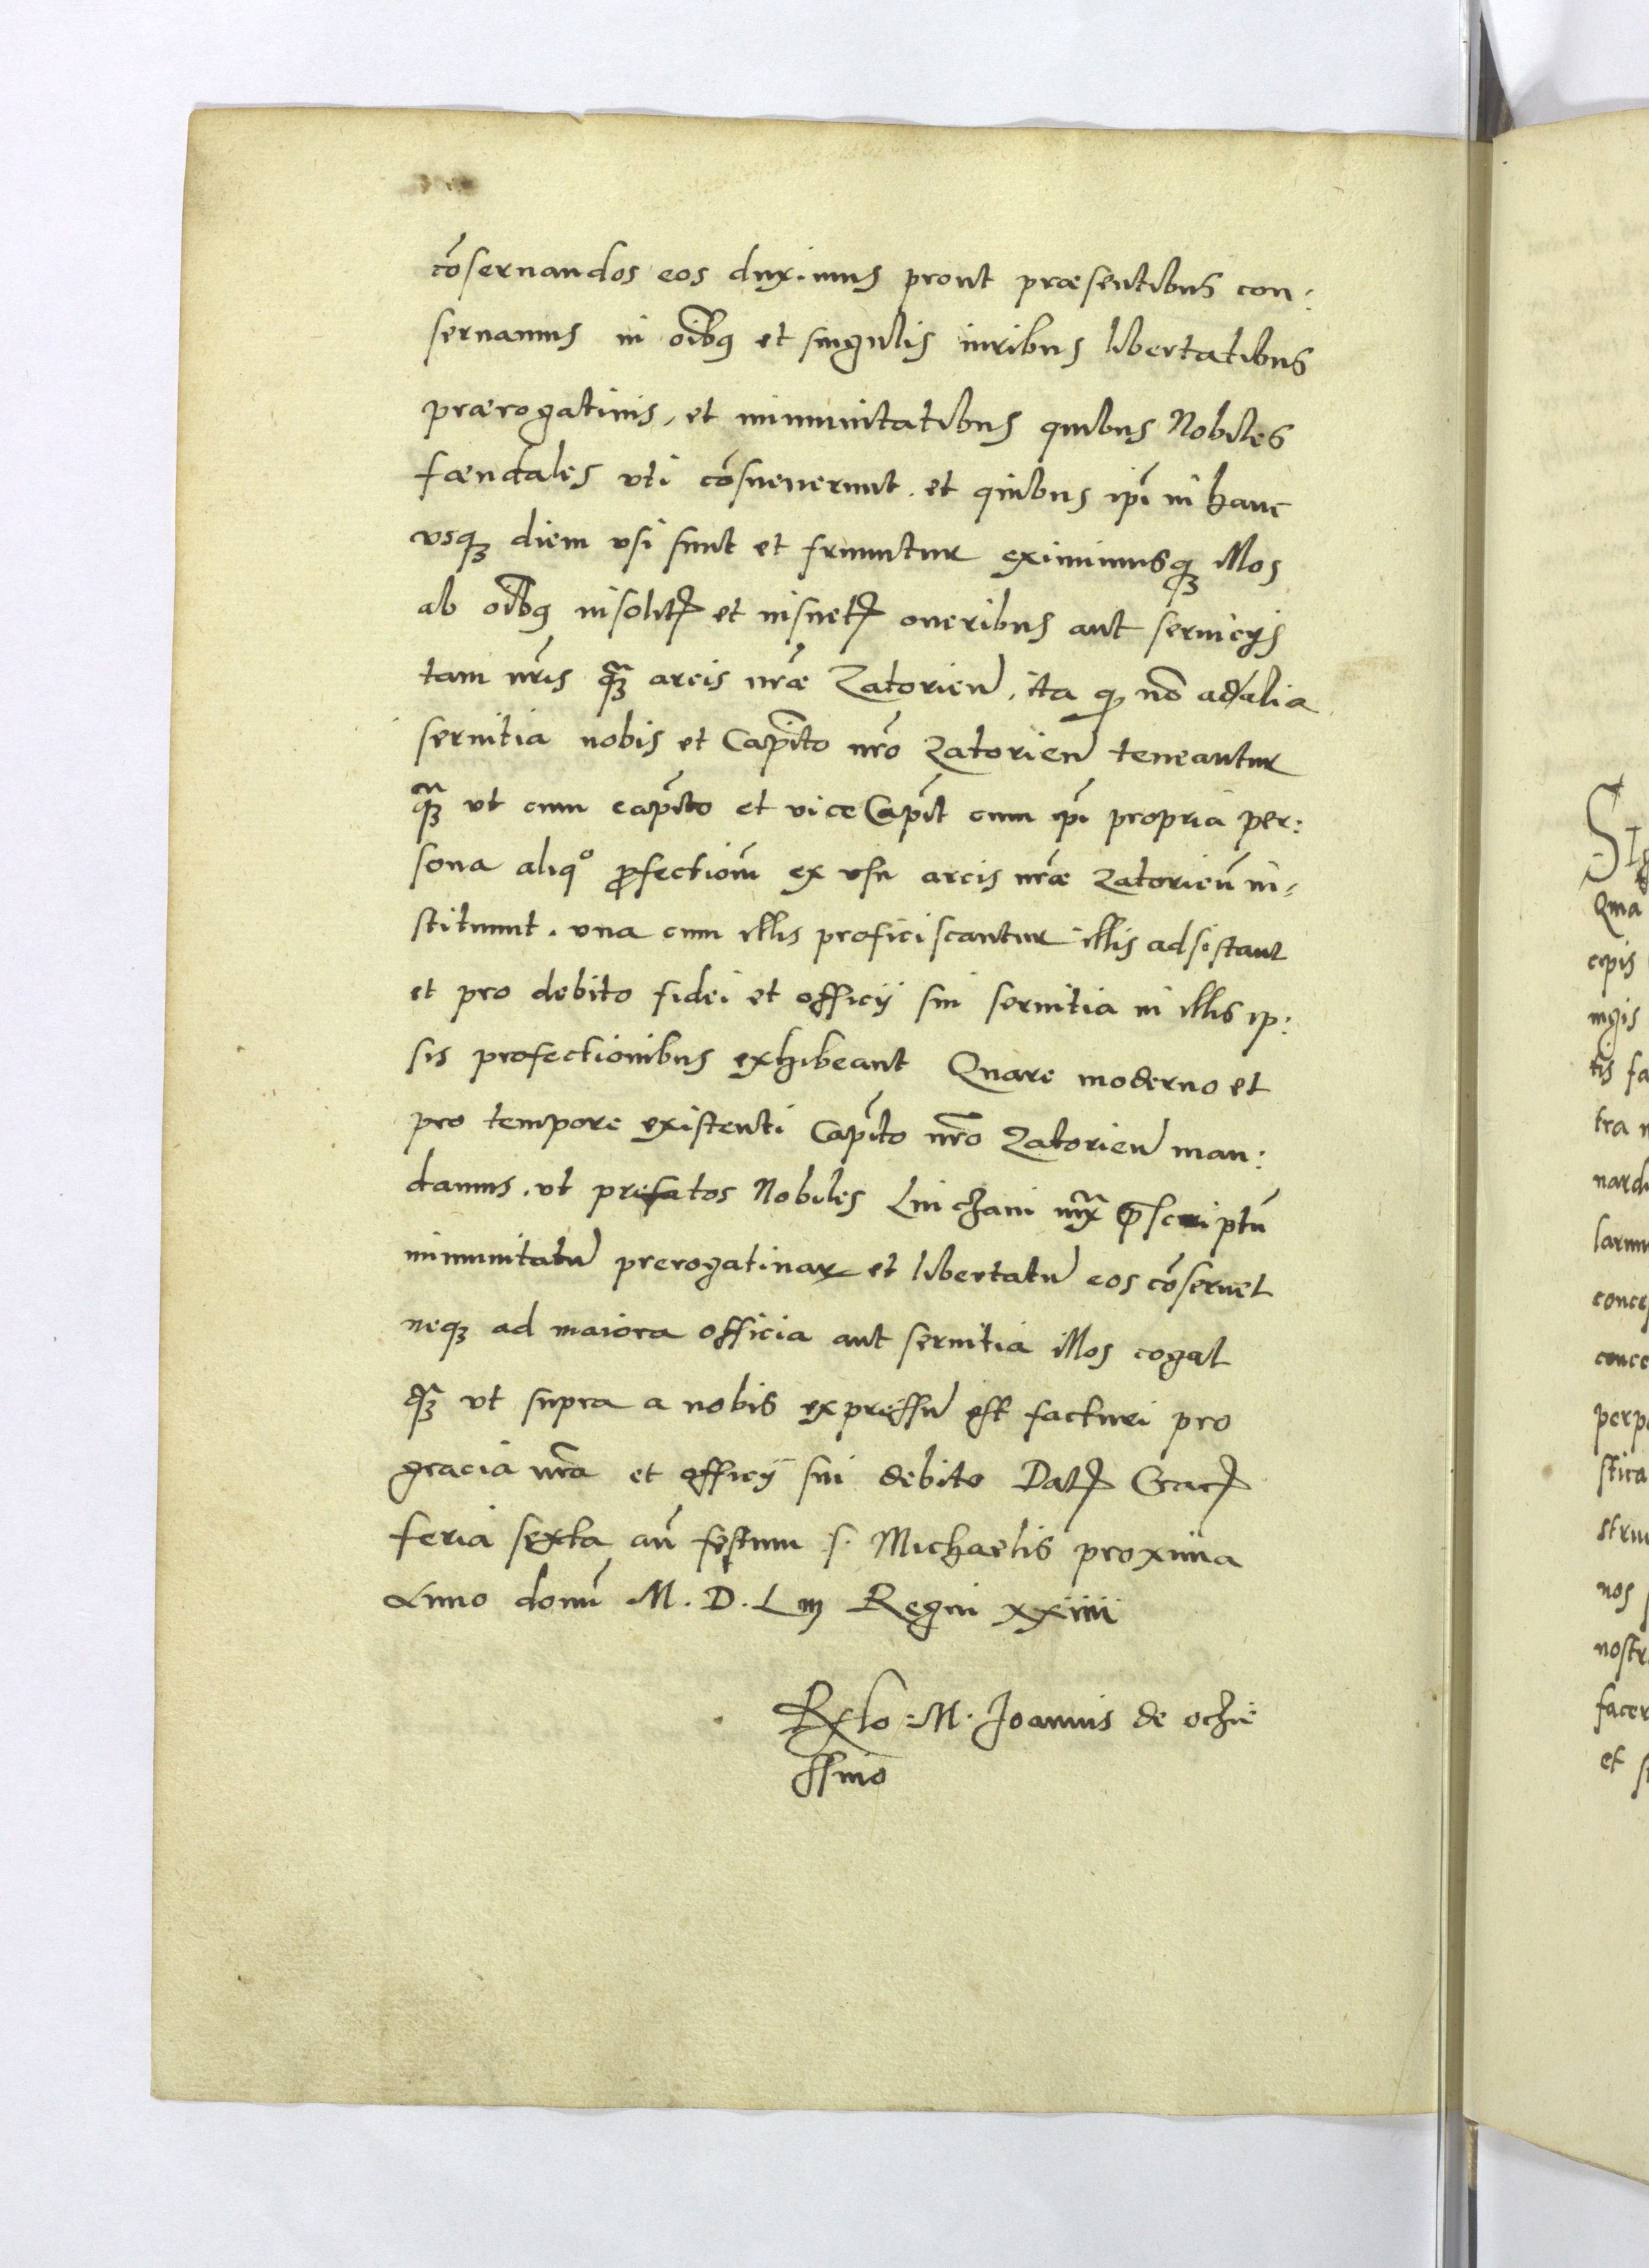 cõseruandos eos duximus prout præsentibus con:
seruamus in oĩbus et singulis iuribus libertatibus
prærogatiuis, et immunitatibus quibus Nobiles
fœudales vti cõsueuerunt. et quibus ipĩ in hanc
vsque diem vsi sunt et fruuntur eximimusque illos
ab oĩbus insolitis et insuetis oneribus aut seruicijs
tam nr̃is quam arcis nr̃æ Zatorien̄. ita quod nõ ad alia
seruitia nobis et Capĩto nr̃o Zatorien̄ teneantur
quam vt cum capĩto et viceCapĩt cum ipĩ propria per:
sona aliqo profectionẽ ex vsu arcis nr̃æ Zatorien̄ in:
stituunt. vna cum illis proficiscantur illis adsistant
et pro debito fidei et officij sui seruitia in illis ip:
sis profectionibus exhibeant Quare moderno et
pro tempore existenti Capĩto nr̃o Zatorien̄ man:
damus. vt prefatos Nobiles iux̃ p̃scriptũ
immunitatũ prerogatiuarum et libertatũ eos cõseruet
neque ad maiora officia aut seruitia illos cogat
quam vt supra a nobis expressũ est facturi pro
gracia nr̃a et officij sui debito Datis Cracis
feria sexta añ festum s. Michaelis proxima
Anno domĩ M. D. L iij Regni xxiiii
Relo: M. Joannis de ochie
ssino
Sig
Qma
cipis
ingis
tis fa
tra n
nardi
larum
conce
perpe
stica
stru
nos
nostr
facer
et s